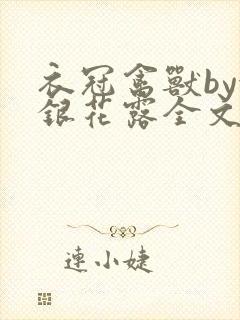 衣冠禽獸by
銀花露全文
連小婕